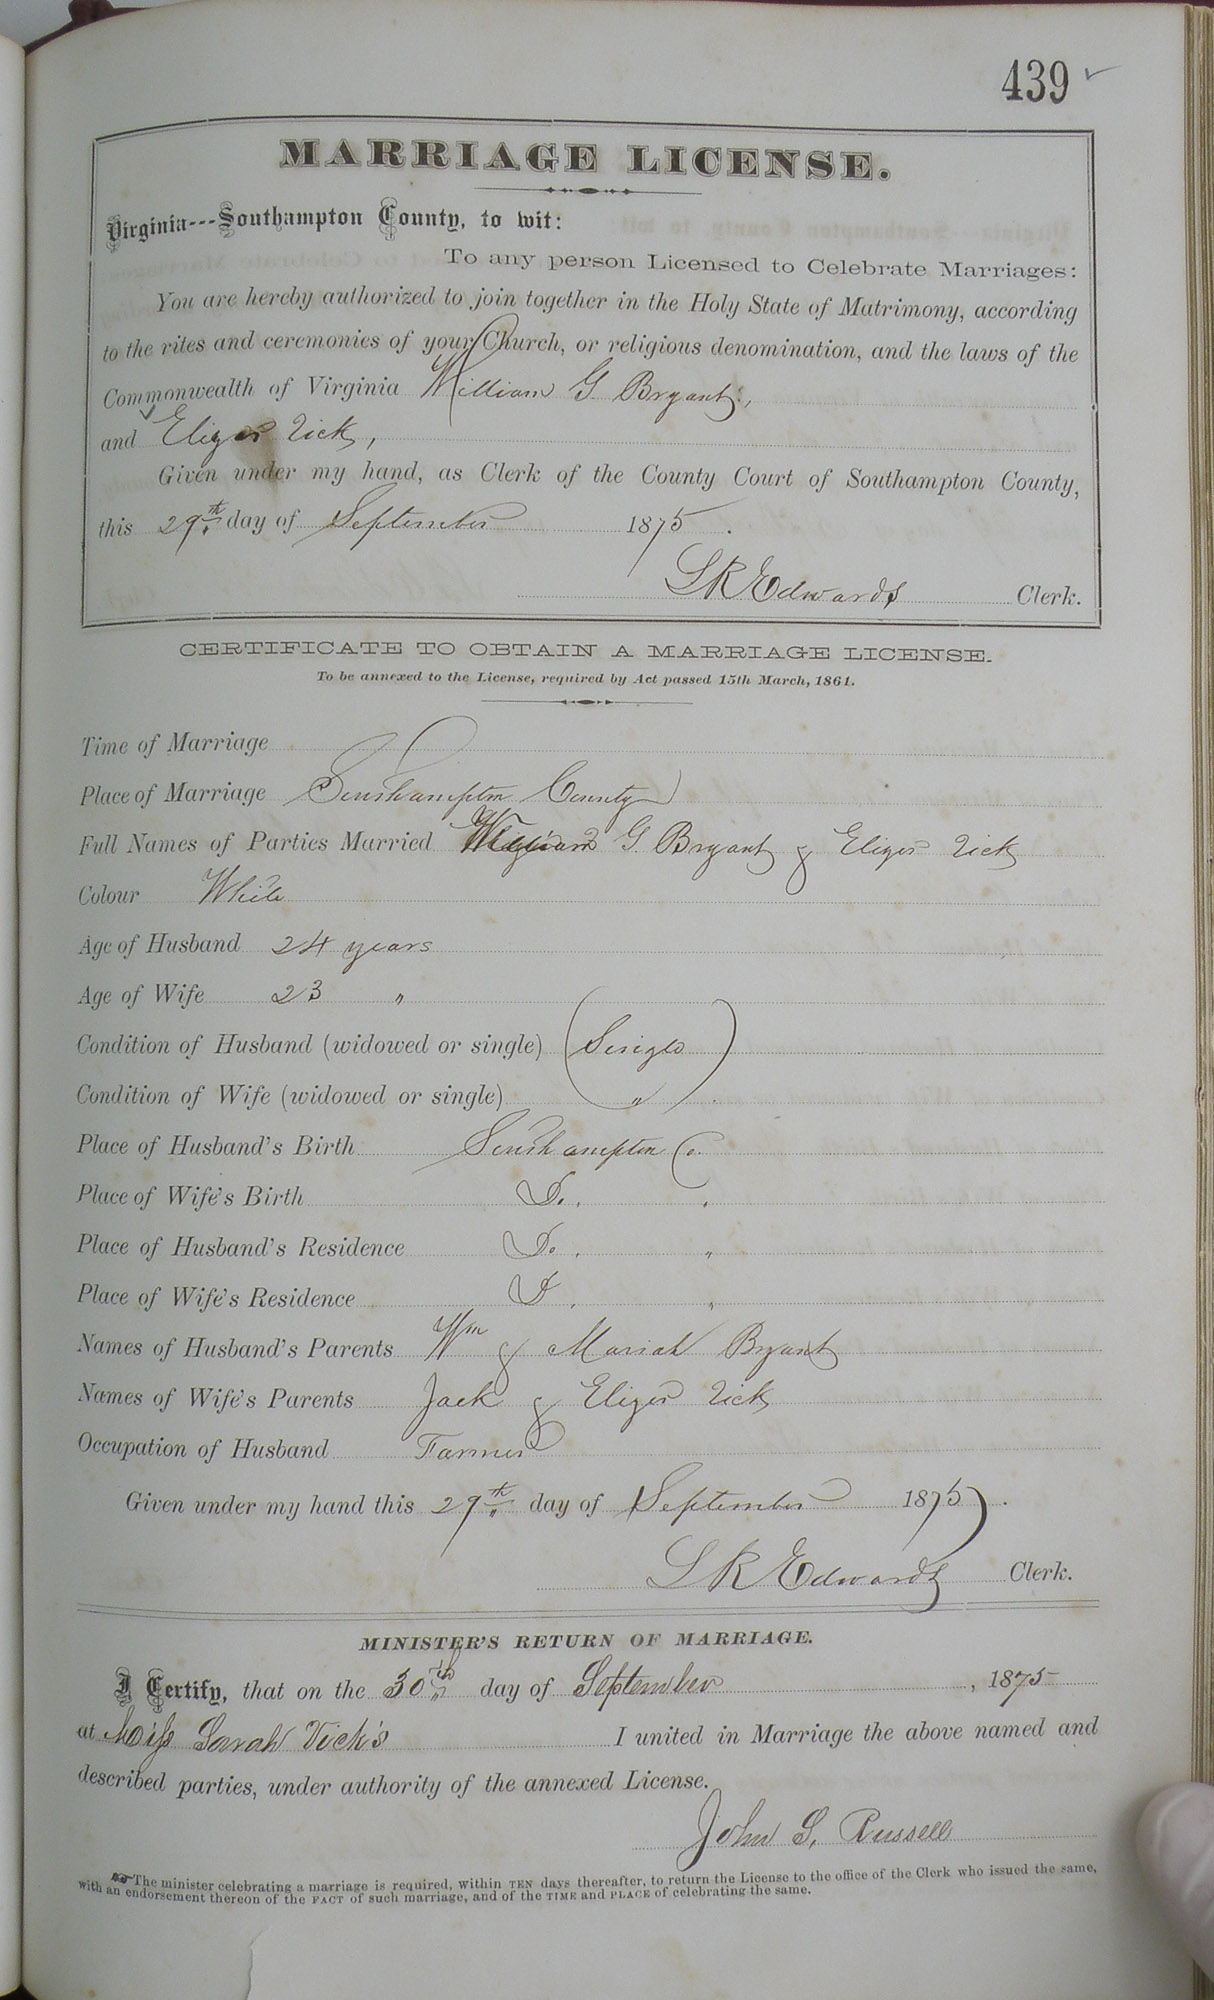 439
MARRIAGE LICENSE.
Virginia---Southampton County, to wit:
To any person Licensed to Celebrate Marriages:
You are hereby authorized to join together in the Holy State of Matrimony, according
to the rites and ceremonies of your Church, or religious denomination, and the laws of the
Commonwealth of Virginia William G. Bryant,
and Vick,
Given under my hand, as Clerk of the County Court of Southampton County,
this 29th day of September 1875.
L R Edwards Clerk.
CERTIFICATE TO OBTAIN A MARRIAGE LICENSE.
To be annexed to the License, required by Act passed 15th March, 1861.
Time of Marriage
Place of Marriage Southampton County
Full Names of Parties Married William G. Bryant & Vick
Colour White
Age of Husband 24 years
Age of Wife 23 "
Condition of Husband (widowed or single) Single
Condition of Wife (widowed or single) "
Place of Husband's Birth Southampton Co.
Place of Wife's Birth Do. "
Place of Husband's Residence Do. "
Place of Wife's Residence D. "
Names of Husband's Parents Wm & Mariah Bryant
Names of Wife's Parents Jack & Vick
Occupation of Husband Farmer
Given under my hand this 29th day of September 1875.
L R Edwards Clerk.
MINISTER'S RETURN OF MARRIAGE.
I Certify, that on the 30th day of September, 1875
at Miss Sarah Vick's I united in Marriage the above named and
described parties, under authority of the annexed License.
John S. Russell
The minister celebrating a marriage is required, within TEN days thereafter, to return the License to the office of the Clerk who issued the same,
with an endorsement thereon of the FACT of such marriage, and of the TIME and PLACE of celebrating the same.